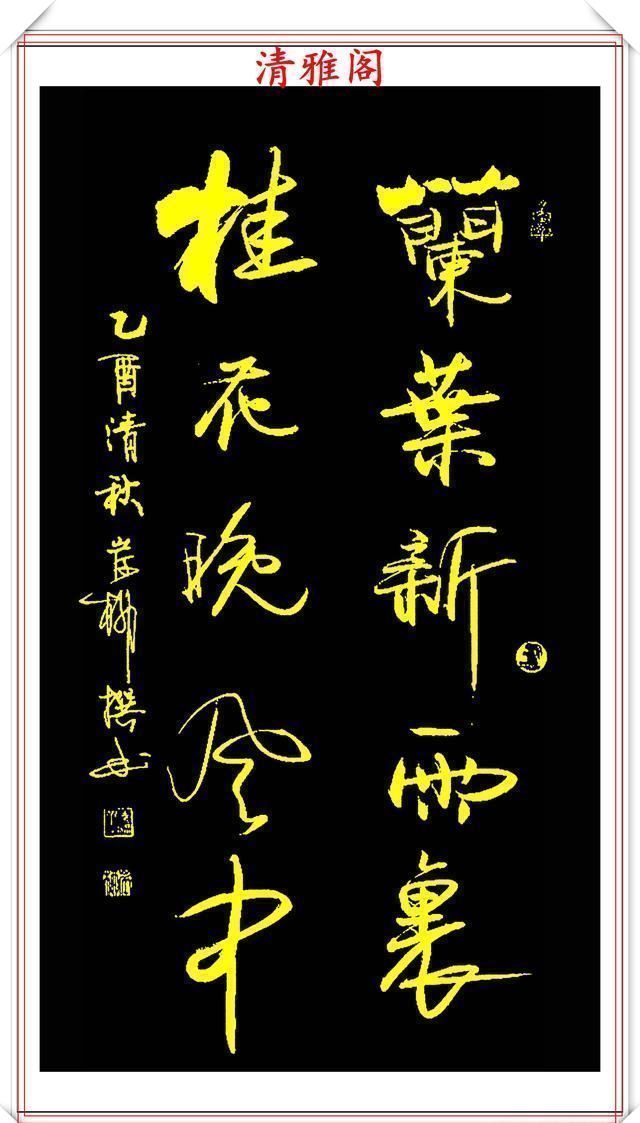 清雅阁
蘭葉新雨裏
桂花晚风中
乙酉清秋岸柳撰书